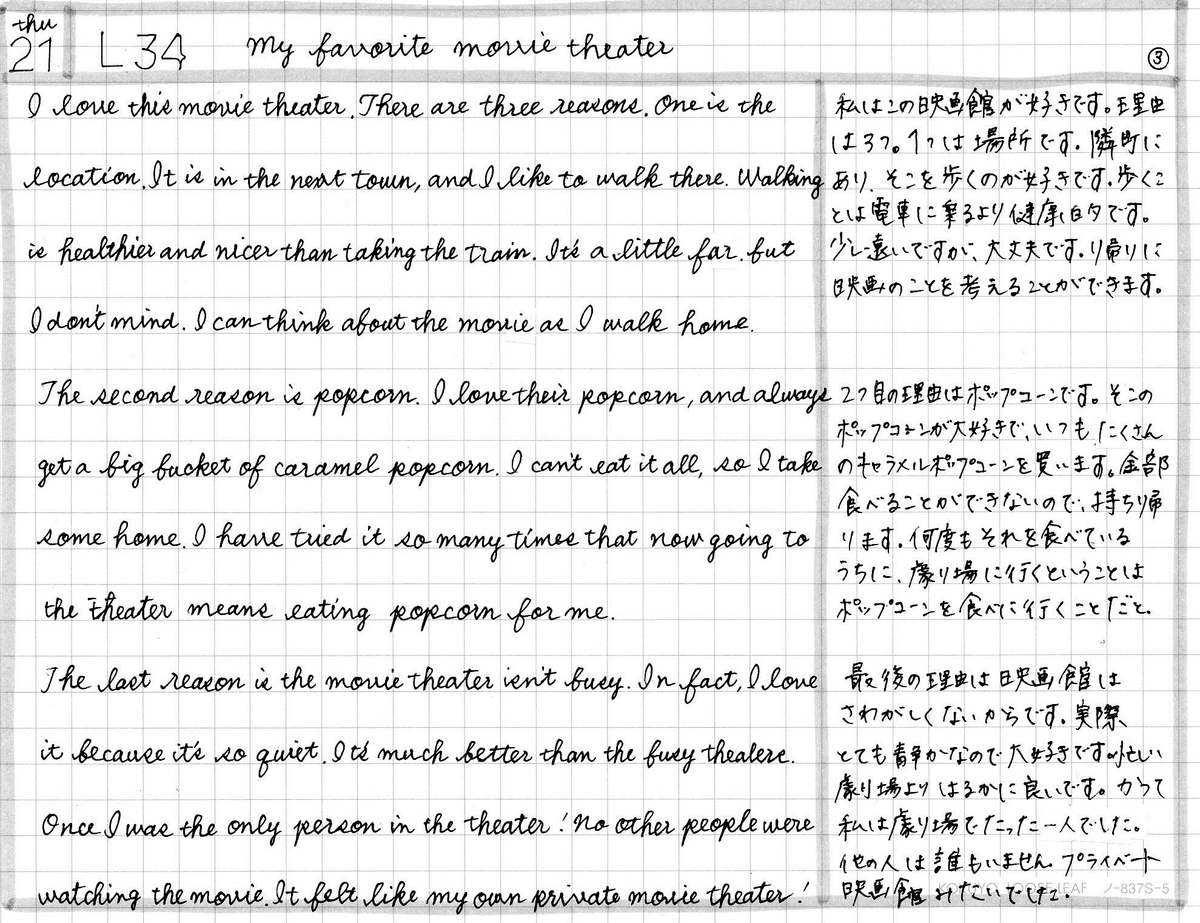 thu
21 L34 My favorite movie theater ③
I love this movie theater. There are three reasons. One is the
location. It is in the next town, and I like to walk there. Walking
is healthier and nicer than taking the train. It's a little far. but
I don't mind. I can think about the movie as I walk home.
The second reason is popcorn. I love their popcorn, and always
get a big bucket of caramel popcorn. I can't eat it all, so I take
some home. I have tried it so many times that now going to
the theater means eating popcorn for me.
The last reason is the movie theater isn't busy. In fact, I love
it because it's so quiet. It's much better than the busy
Once I was the only person in the theater! No other people were
watching the movie. It felt like my own private movie theater!
私はこの映画館が好きです。理由
は3つ。1つは場所です。隣町に
あり、そこを歩くのが好きです。歩くこ
とは電車に乗るより健康的です。
少し遠いですが、大丈夫です。帰りに
映画のことを考えることができます。
2つ目の理由はポップコーンです。そこの
ポップコーンが大好きで、いつもたくさん
のキャラメルポップコーンを買います。全部
食べることができないので、持ち帰
ります。何度もそれを食べている
うちに、劇場に行くということは
ポップコーンを食べに行くことだと。
最後の理由は映画館は
さわがしくないからです。実際
とても静かなので大好きです。忙しい
劇場よりはるかに良いです。かつて
私は劇場でたった一人でした。
他の人は誰もいません。プライベート
映画館みたいでした。
KOKUYO LOOSE-LEAF ノ-837S-5